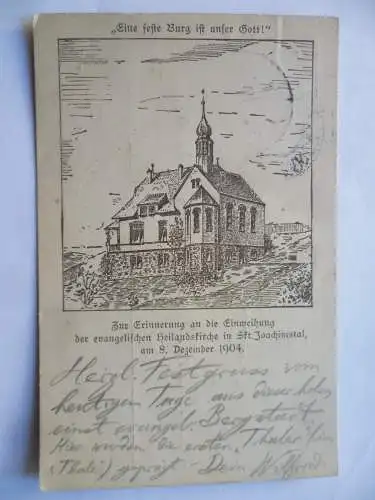 „Eine feste Burg ist unser Gott!“
Zur Erinnerung an die Einweihung
der evangelischen Heilandskirche in Skt. Joachimstal,
am 8. Dezember 1904.
Herzl. Festgruss vom
heutigen Tage aus dieser hohen
einst evangel. Bergstadt.
Hier wurden die ersten „Thaler“
(Thaler) geprägt – Dein